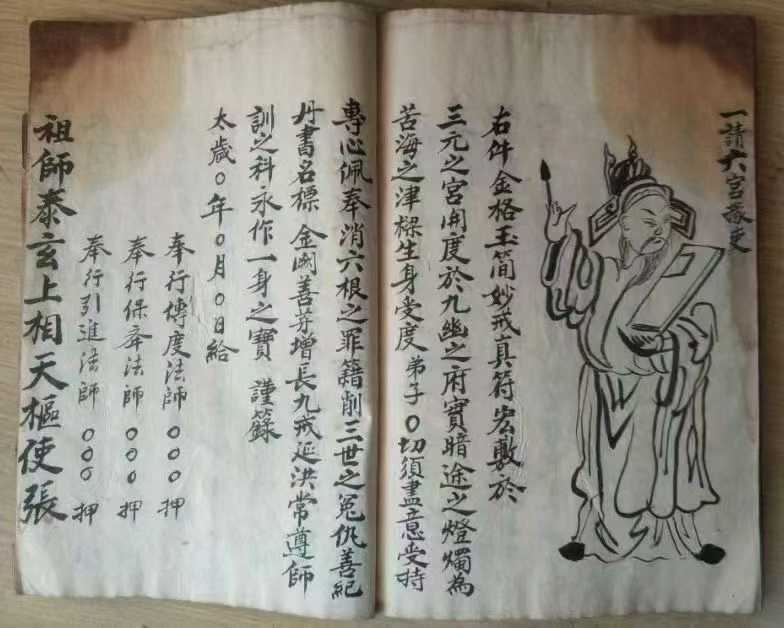 一請六宮掾吏
右件金格玉简妙戒真符宏敷於
三元之宮開度於九幽之府實暗途之燈燭為
苦海之津樑生身受度 弟子〇切須盡意受持
專心佩奉消六根之罪籍削三世之冤仇善紀
丹書名標 金闕善芽增長九戒延洪常遵師
訓之科永作一身之寶 謹籙
太歲〇年〇月〇日給
奉行傳度法師〇〇〇 押
奉行保奔法師〇〇〇 押
奉行引進法師〇〇〇 押
祖師泰玄上相天樞使張